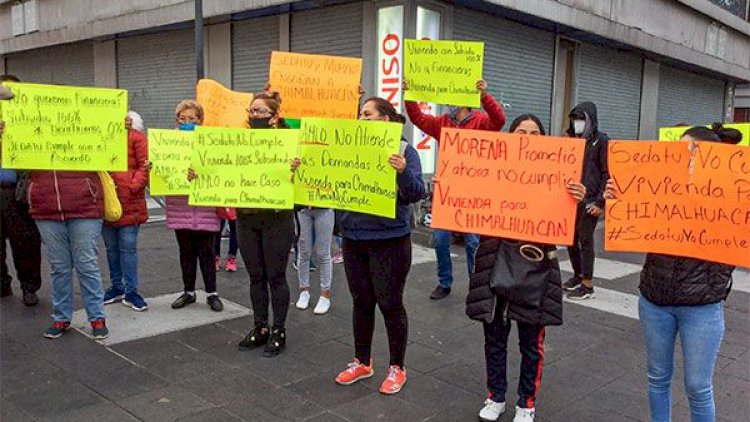 No queremos Financieras
Subsidio 100%
Beneficiarios 0%
SEDATU Cumple con el
Acuerdo
Vivienda
AMLO
Vivienda
Vivienda
Vivienda 100% Subsidiada
AMLO no hace caso
Vivienda para Chimalhuacan
SEDATU y Morena
Engañan a
CHIMALHUACAN
AMLO No atiende
las Demandas de
Vivienda para Chimalhuacan
Vivienda con SEDATU
No y financieras
100%
NISO
MORENA Prometió
y ahora no cumplió
Vivienda para
CHIMALHUACAN
SEDATU No Co
Vivienda P
CHIMALHUACA
#SEDATU No Cumple